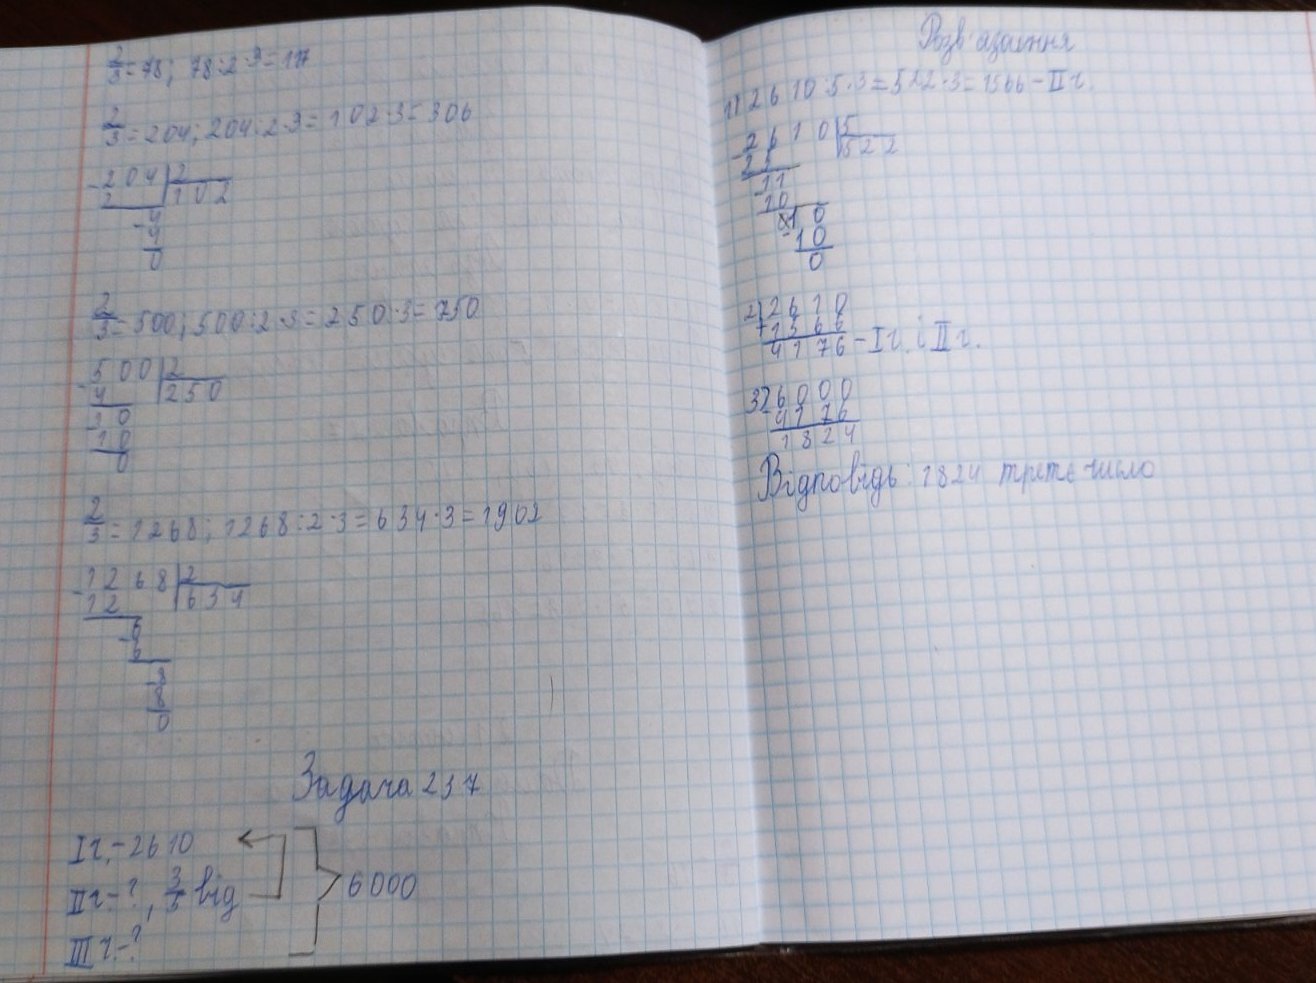 2/3=78; 78:2·3=117
2/3=204; 204:2·3=102·3=306
-204|2
2 |102
-4
4
0
2/3=500; 500:2·3=250·3=750
-500|2
4 |250
-10
10
0
2/3=1268; 1268:2·3=634·3=1902
-1268|2
12 |634
-6
6
-8
8
0
Задача 237
І ч.-2610
ІІ ч-?, 3/5 від
ІІІ ч.-?
6000
Розв'язання
1) 2610:5·3=522·3=1566-ІІ ч.
-2610|5
25 |522
-11
10
-10
10
0
2) 2610
+1566
4176-І ч. і ІІ ч.
3) 6000
4176
1824
Відповідь: 1824 третє число